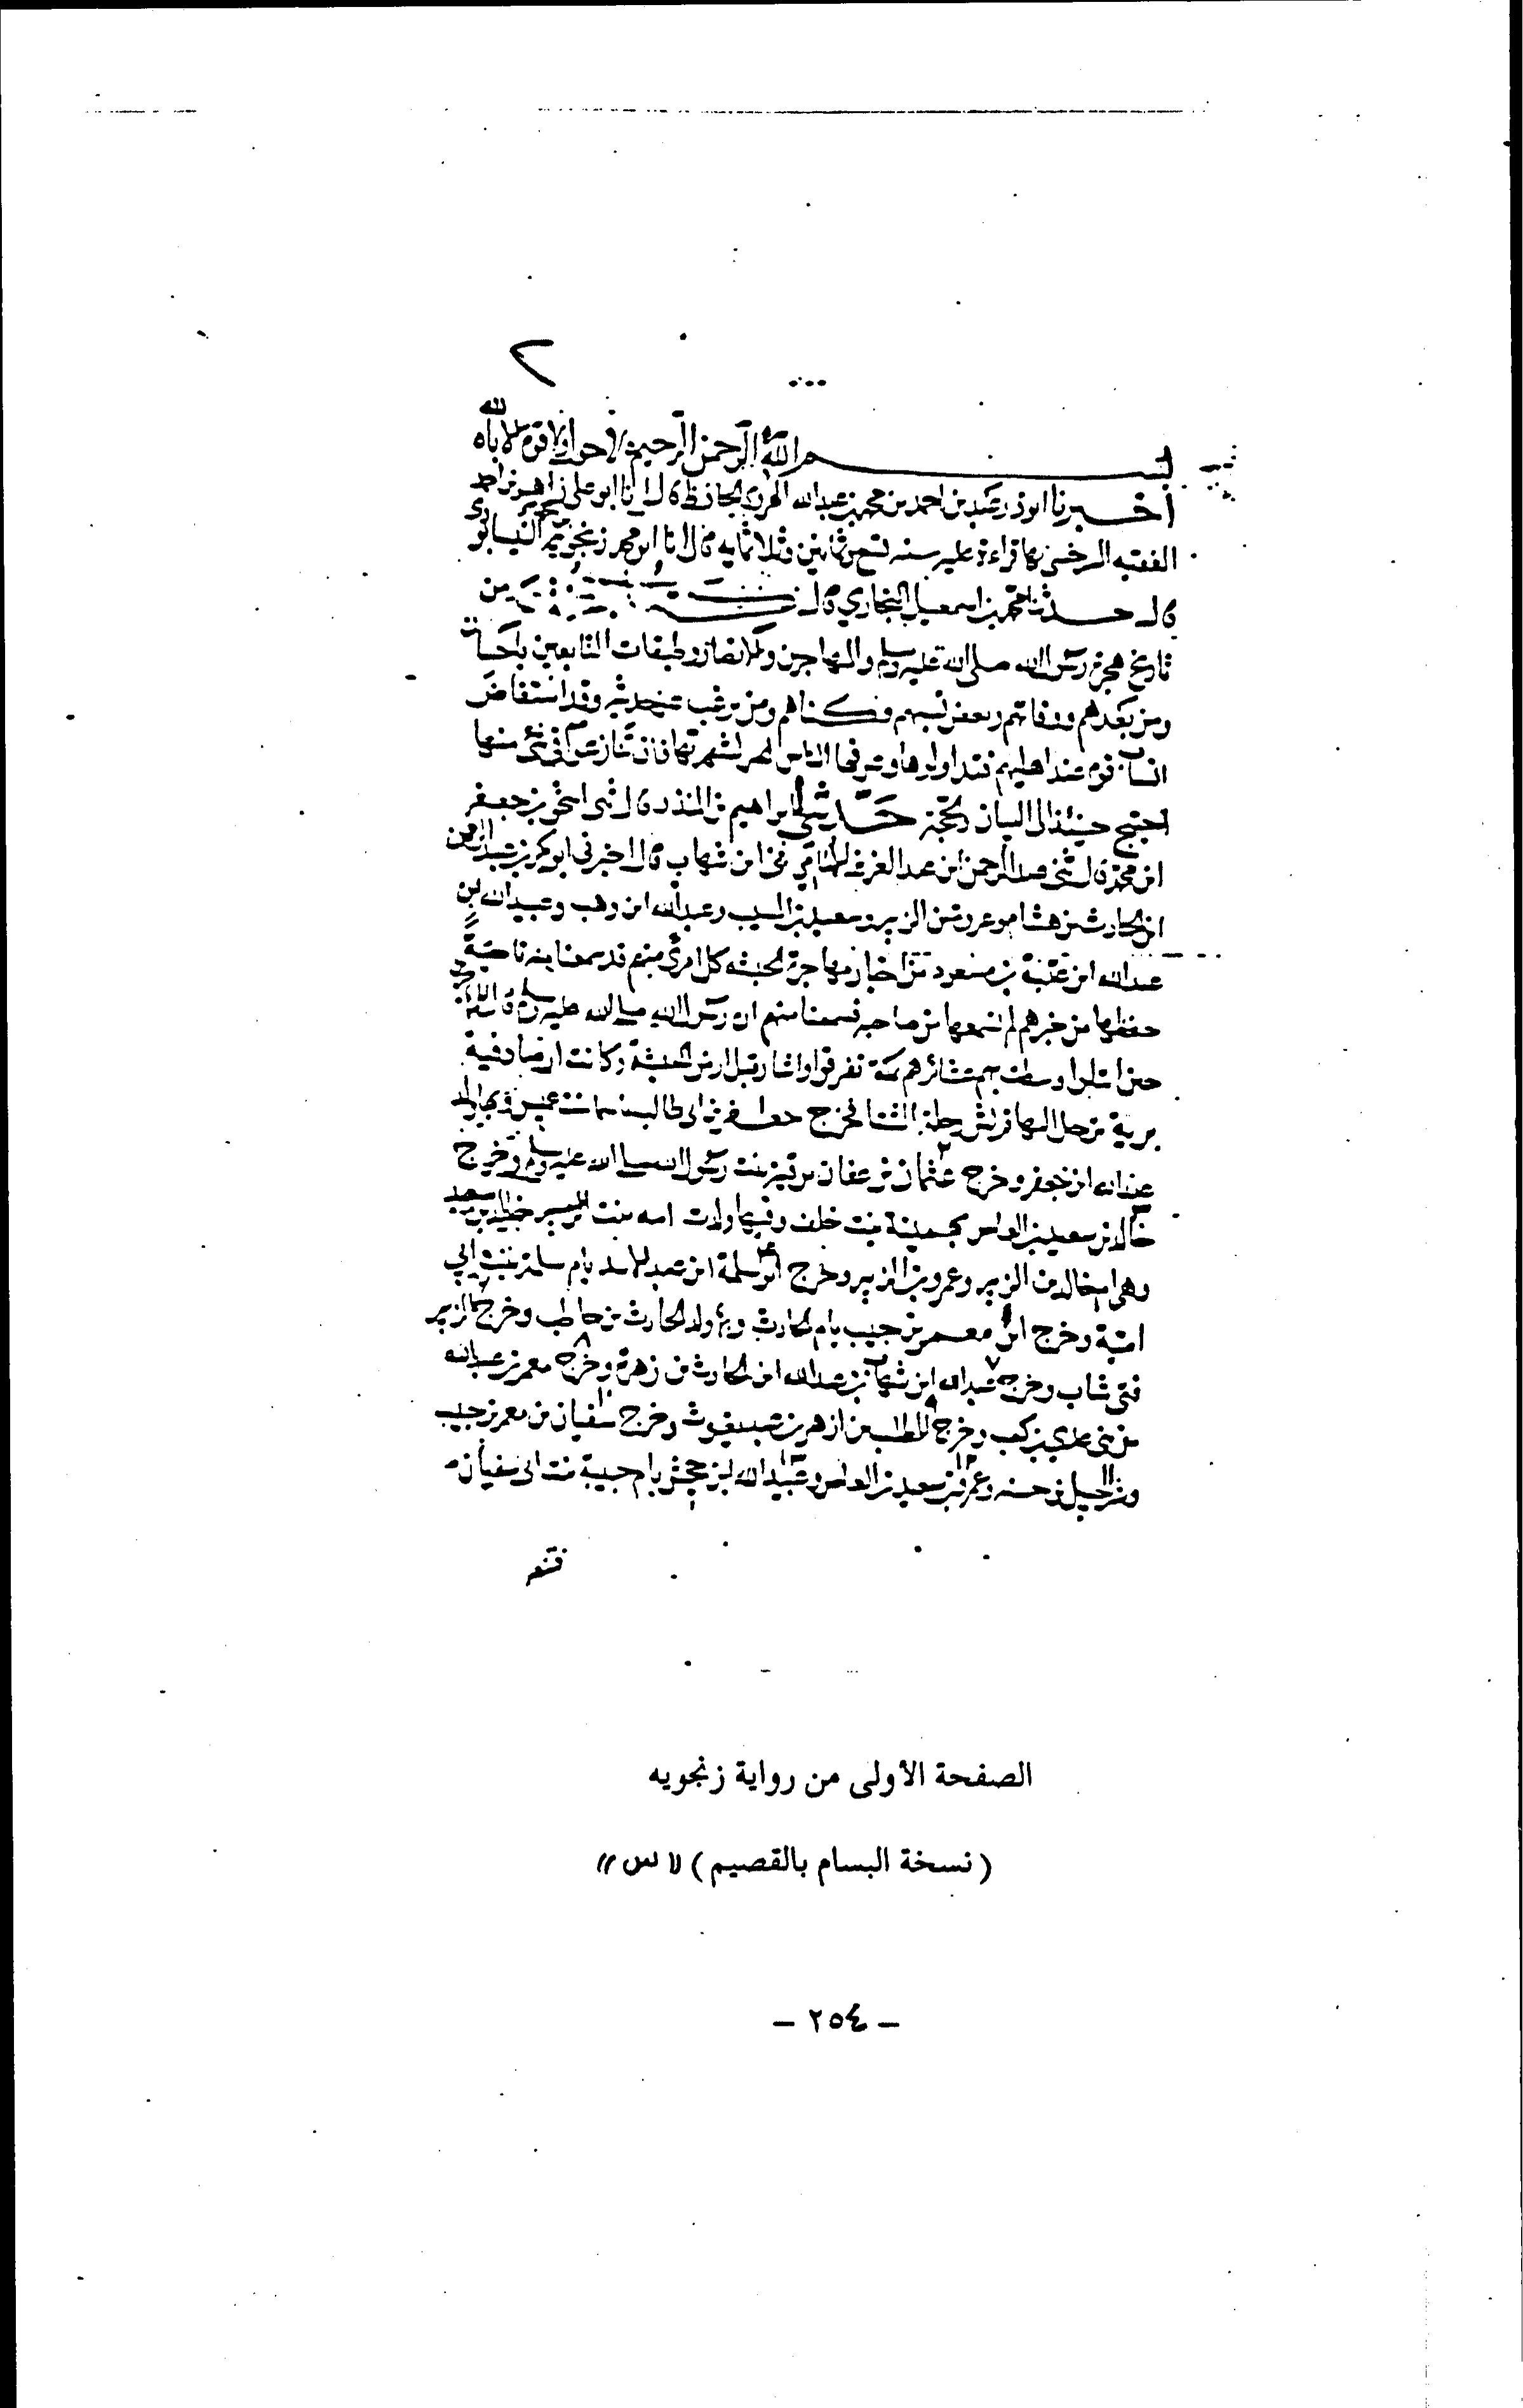 ٢
بسم الله الرحمن الرحيم لا حول ولا قوة الا بالله
أخبرنا ابو ذر عبد بن احمد بن محمد بن عبد الله الهروي الحافظ قال انا ابو علي زاهر بن احمد
الفقيه السرخسي بها قراءة عليه سنه تسع وثمانين وثلاثمايه قال انا ابو محمد زنجويه بن محمد النيسابوري
قال حدثنا محمد بن اسمعيل البخاري قال من
تاريخ هجرة رسول الله صلى الله عليه وسلم والمهاجرين والانصار وطبقات التابعين باحسان
ومن بعدهم ووفاتهم وبعض نسبهم وكناهم ومن يرغب عن حديثه وقد استفاض
انساب قوم عند اهليهم فتداولوها وعرفها الناس لشهرتها فان تنازعوا في شئ منها
احتيج حينئذ الى البيان والحجة حدثني ابراهيم بن المنذر قال ثني اسحق بن جعفر
ابن محمد قال ثني عبد الرحمن ابن عبد العزيز الامامي عن ابن شهاب قال اخبرني ابو بكر بن عبد الرحمن
ابن الحارث بن هشام وعروة بن الزبير وسعيد بن المسيب وعبد الله ابن وهب وعبيد الله بن
عبد الله ابن عتبة بن مسعود من اخبار مهاجرة الحبشه كل امرئ منهم قد سمعنا منه ناحية
حفظها من خبرهم لم نسمعها من صاحبه فسمعنا منهم ان رسول الله صلى الله عليه وسلم قال
حين ابتلوا وسطت بهم عشائرهم بمكة تفرقوا واشار قبل ارض الحبشة وكانت ارضا دفية
برية ترحل اليها قريش رحلة الشتا فخرج جعفر بن ابي طالب باسمات عميس وبها ولد
عبد الله ابن جعفر وخرج عثمان بن عفان برقية بنت رسول الله صلى الله عليه وسلم وخرج
خالد بن سعيد بن العاص بهمينة بنت خلف وفيها ولدت امه بنت خالد بن سعيد
وهي ام خالد بن الزبير وعمرو بن الزبير وخرج ابو سلمة ابن عبد الاسد بام سلمة بنت ابي
امية وخرج ابن معمر بن حبيب بام الحارث وبها ولد الحارث بن حاطب وخرج الزبير
فتى شاب وخرج عبد الله ابن شهاب بن عبد الله ابن الحارث بن زهرة وخرج معمر بن عبد الله
من بني عدي بن كعب وخرج المطلب بن ازهر بن عبد يغوث وخرج سفيان بن معمر بن حبيب
وشرحبيل بن حسنه وعمرو بن سعيد بن العاص وعبيد الله بن جحش بام حبيبة بنت ابي سفيان
الصفحة الأولى من رواية زنجويه
(نسخة البسام بالقصيم) «س»
- ٢٥٤ -